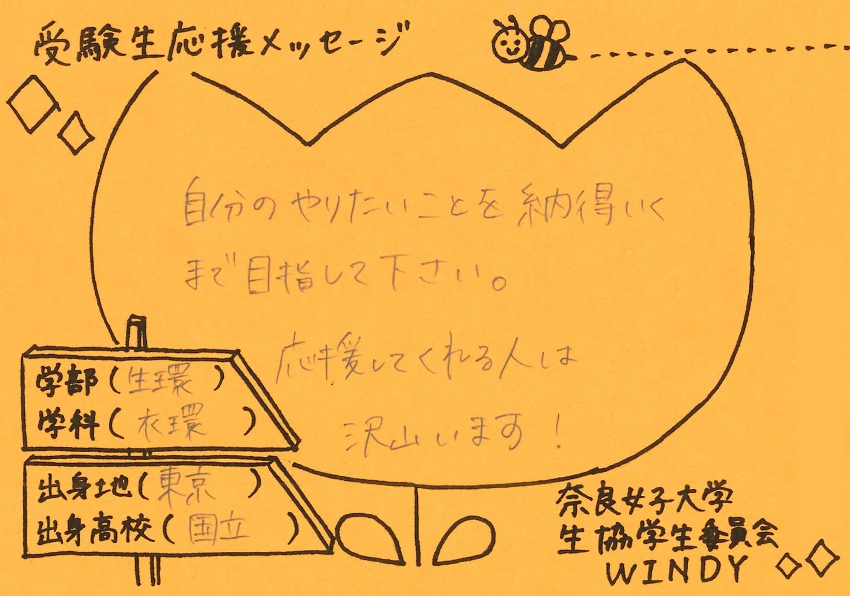 受験生応援メッセージ
自分のやりたいことを納得いく
まで目指して下さい。
応援してくれる人は
沢山います!
学部(生環)
学科(衣環)
出身地(東京)
出身高校(国立)
奈良女子大学
生協学生委員会
WINDY